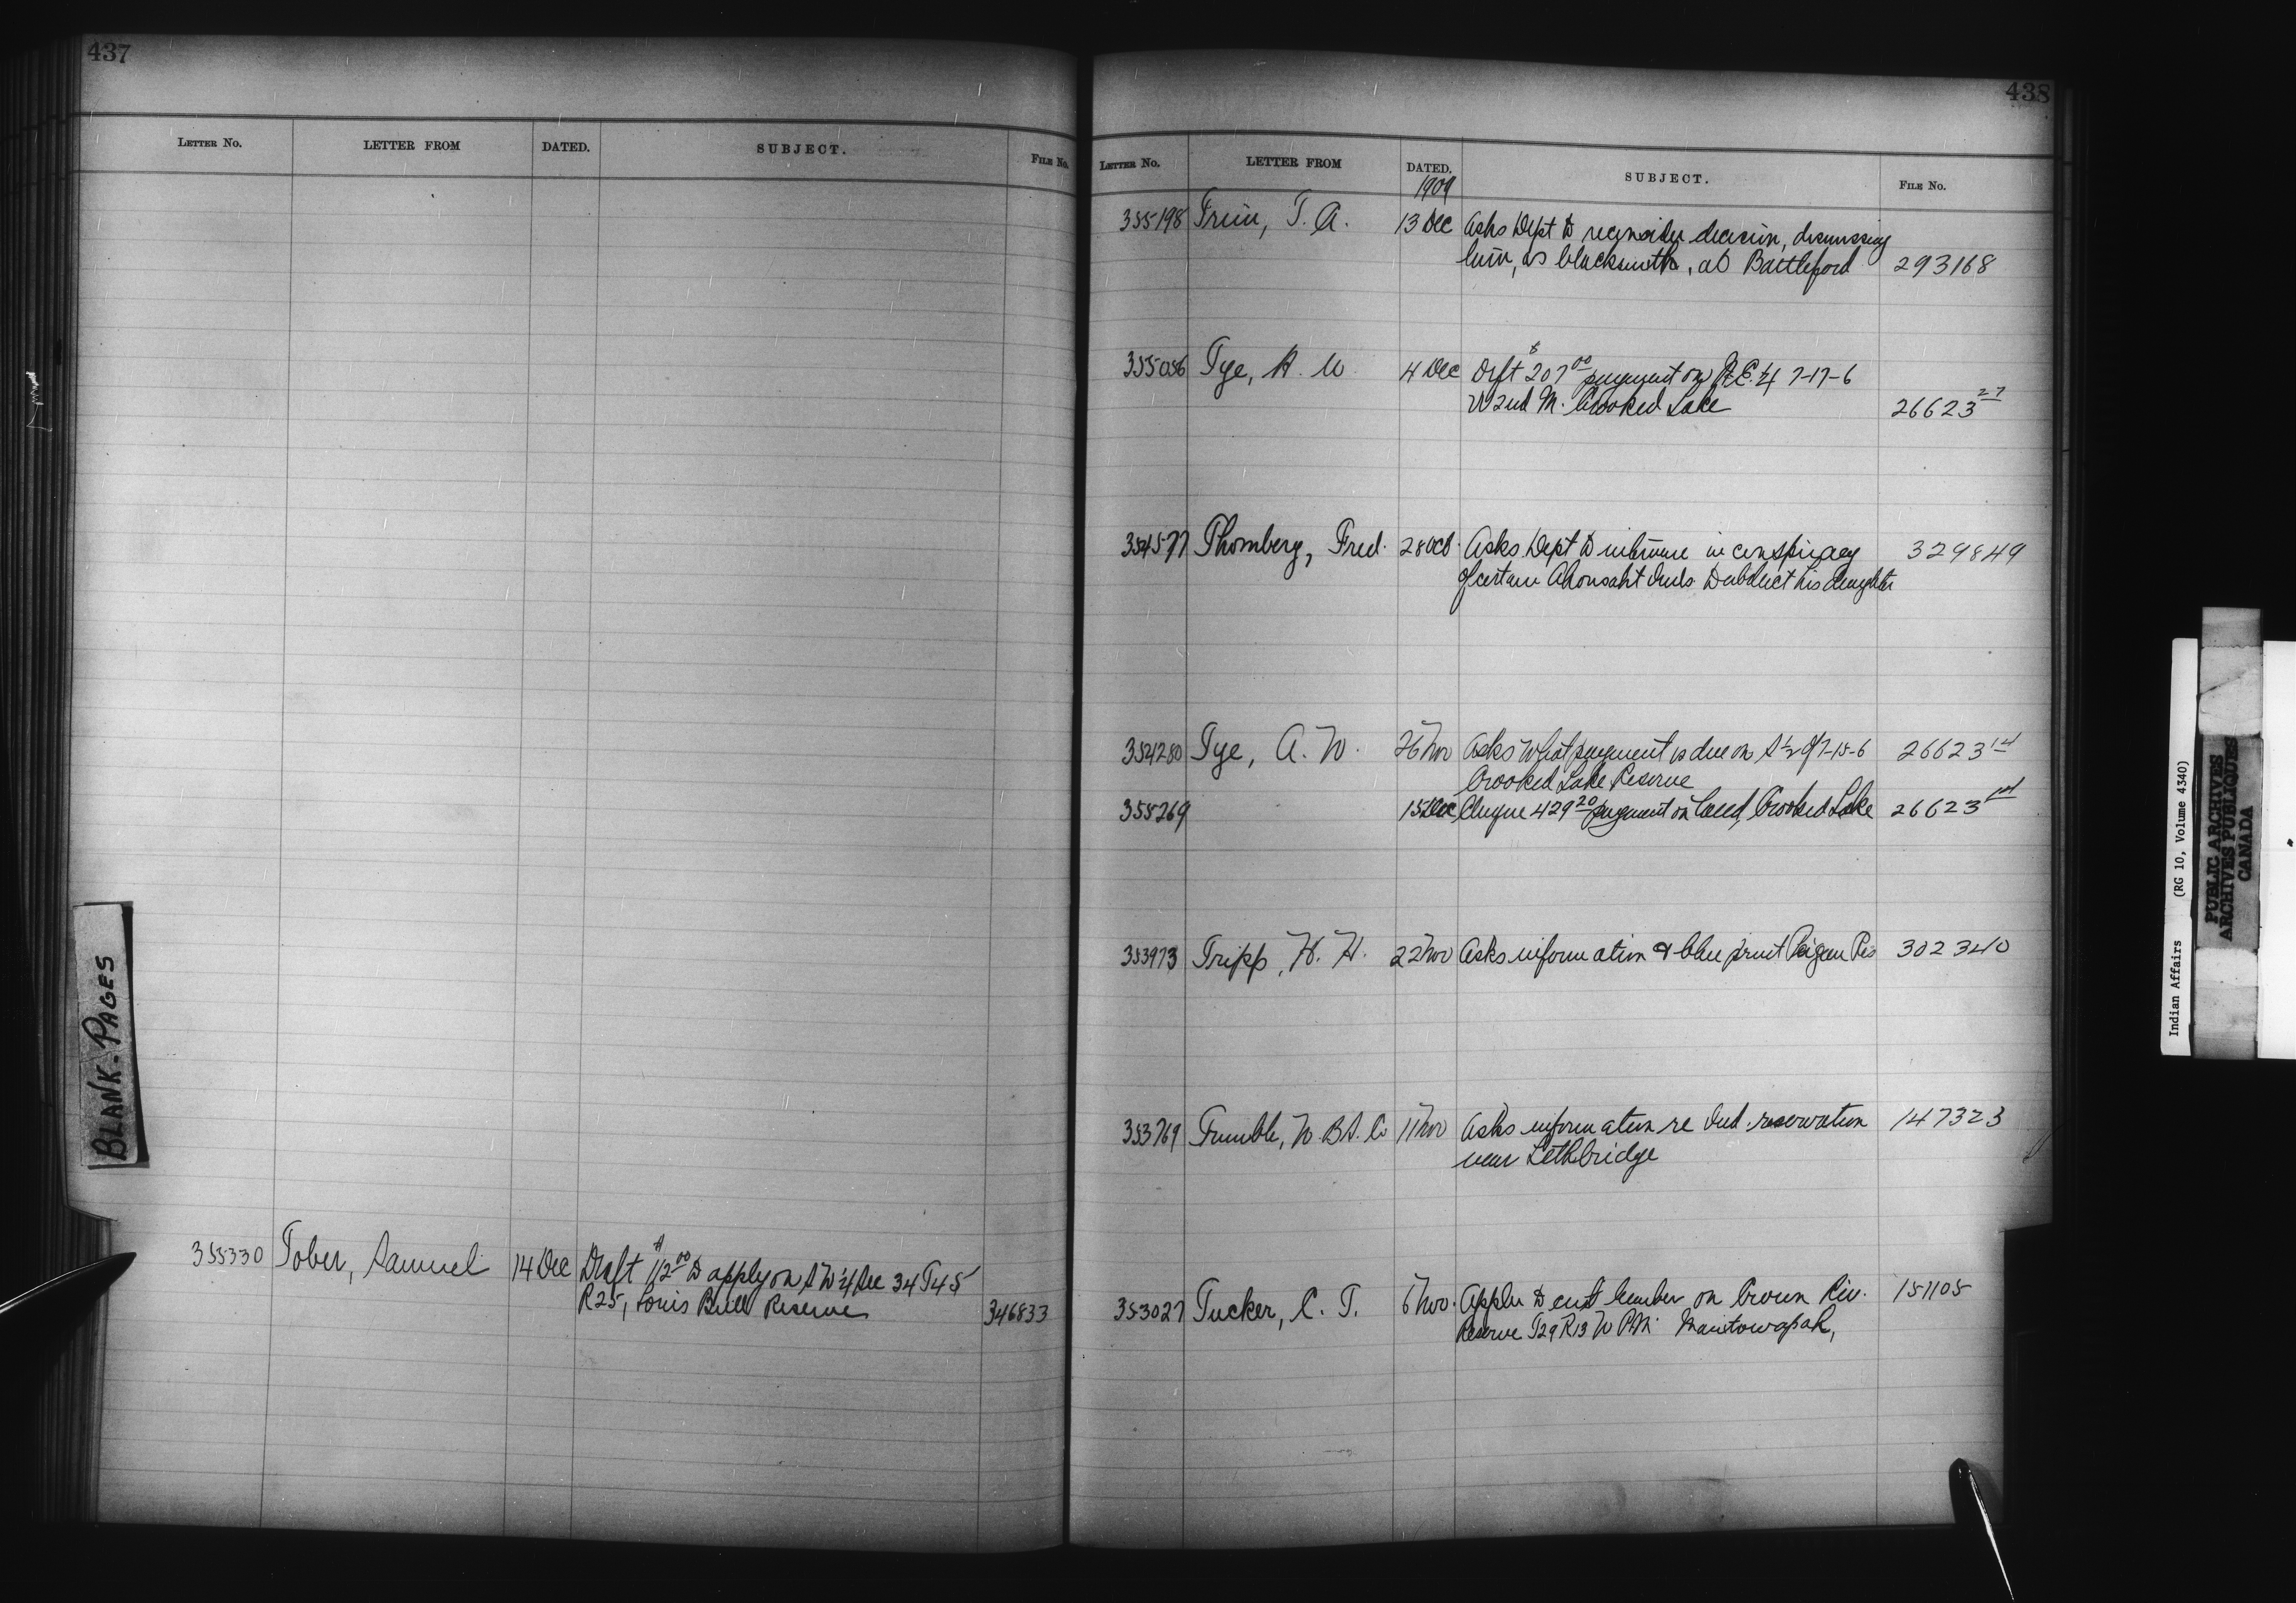 437
LETTER No. LETTER FROM DATED. SUBJECT. FILE No.
BLANK-PAGES
355330 Tober, Samuel 14 Dec Draft $112.00 to apply on SW 1/4 Sec 34 T45
R25, Louis Bull Reserve 346833
438
LETTER No. LETTER FROM DATED. SUBJECT. FILE No.
1909
355198 T. A. 13 Dec Asks Dept to reconsider decision, dismissing
him, as blacksmith, at Battleford 293168
355056 Tye, A. W 4 Dec Dft $207.00 payment on N.E. 1/4 7-17-6
W 2nd M. Crooked Lake 26623 27
354577 Thomberg, Fred. 28 Oct. Asks Dept to intervene in conspiracy 329849
of certain Ahousaht Inds. to abduct his daughter
354280 Tye, A. W. 26 Nov Asks what payment is due on S 1/2 of 7-18-6 26623
Crooked Lake Reserve
355269 15 Dec Cheque 429.20 payment on land, Crooked Lake 26623
353973 Tripp, H. H. 22 Nov Asks information & blue print Peigan Res 302340
353769 17 Nov Asks information re Ind. reservation 147323
near Lethbridge
353027 Tucker, C. T. 6 Nov. Appln to cut lumber on Crown Riv. 151105
Reserve T29 R13 W PM. Manitowapah,
Indian Affairs (RG 10, Volume 4340)
PUBLIC ARCHIVES
ARCHIVES PUBLIQUES
CANADA